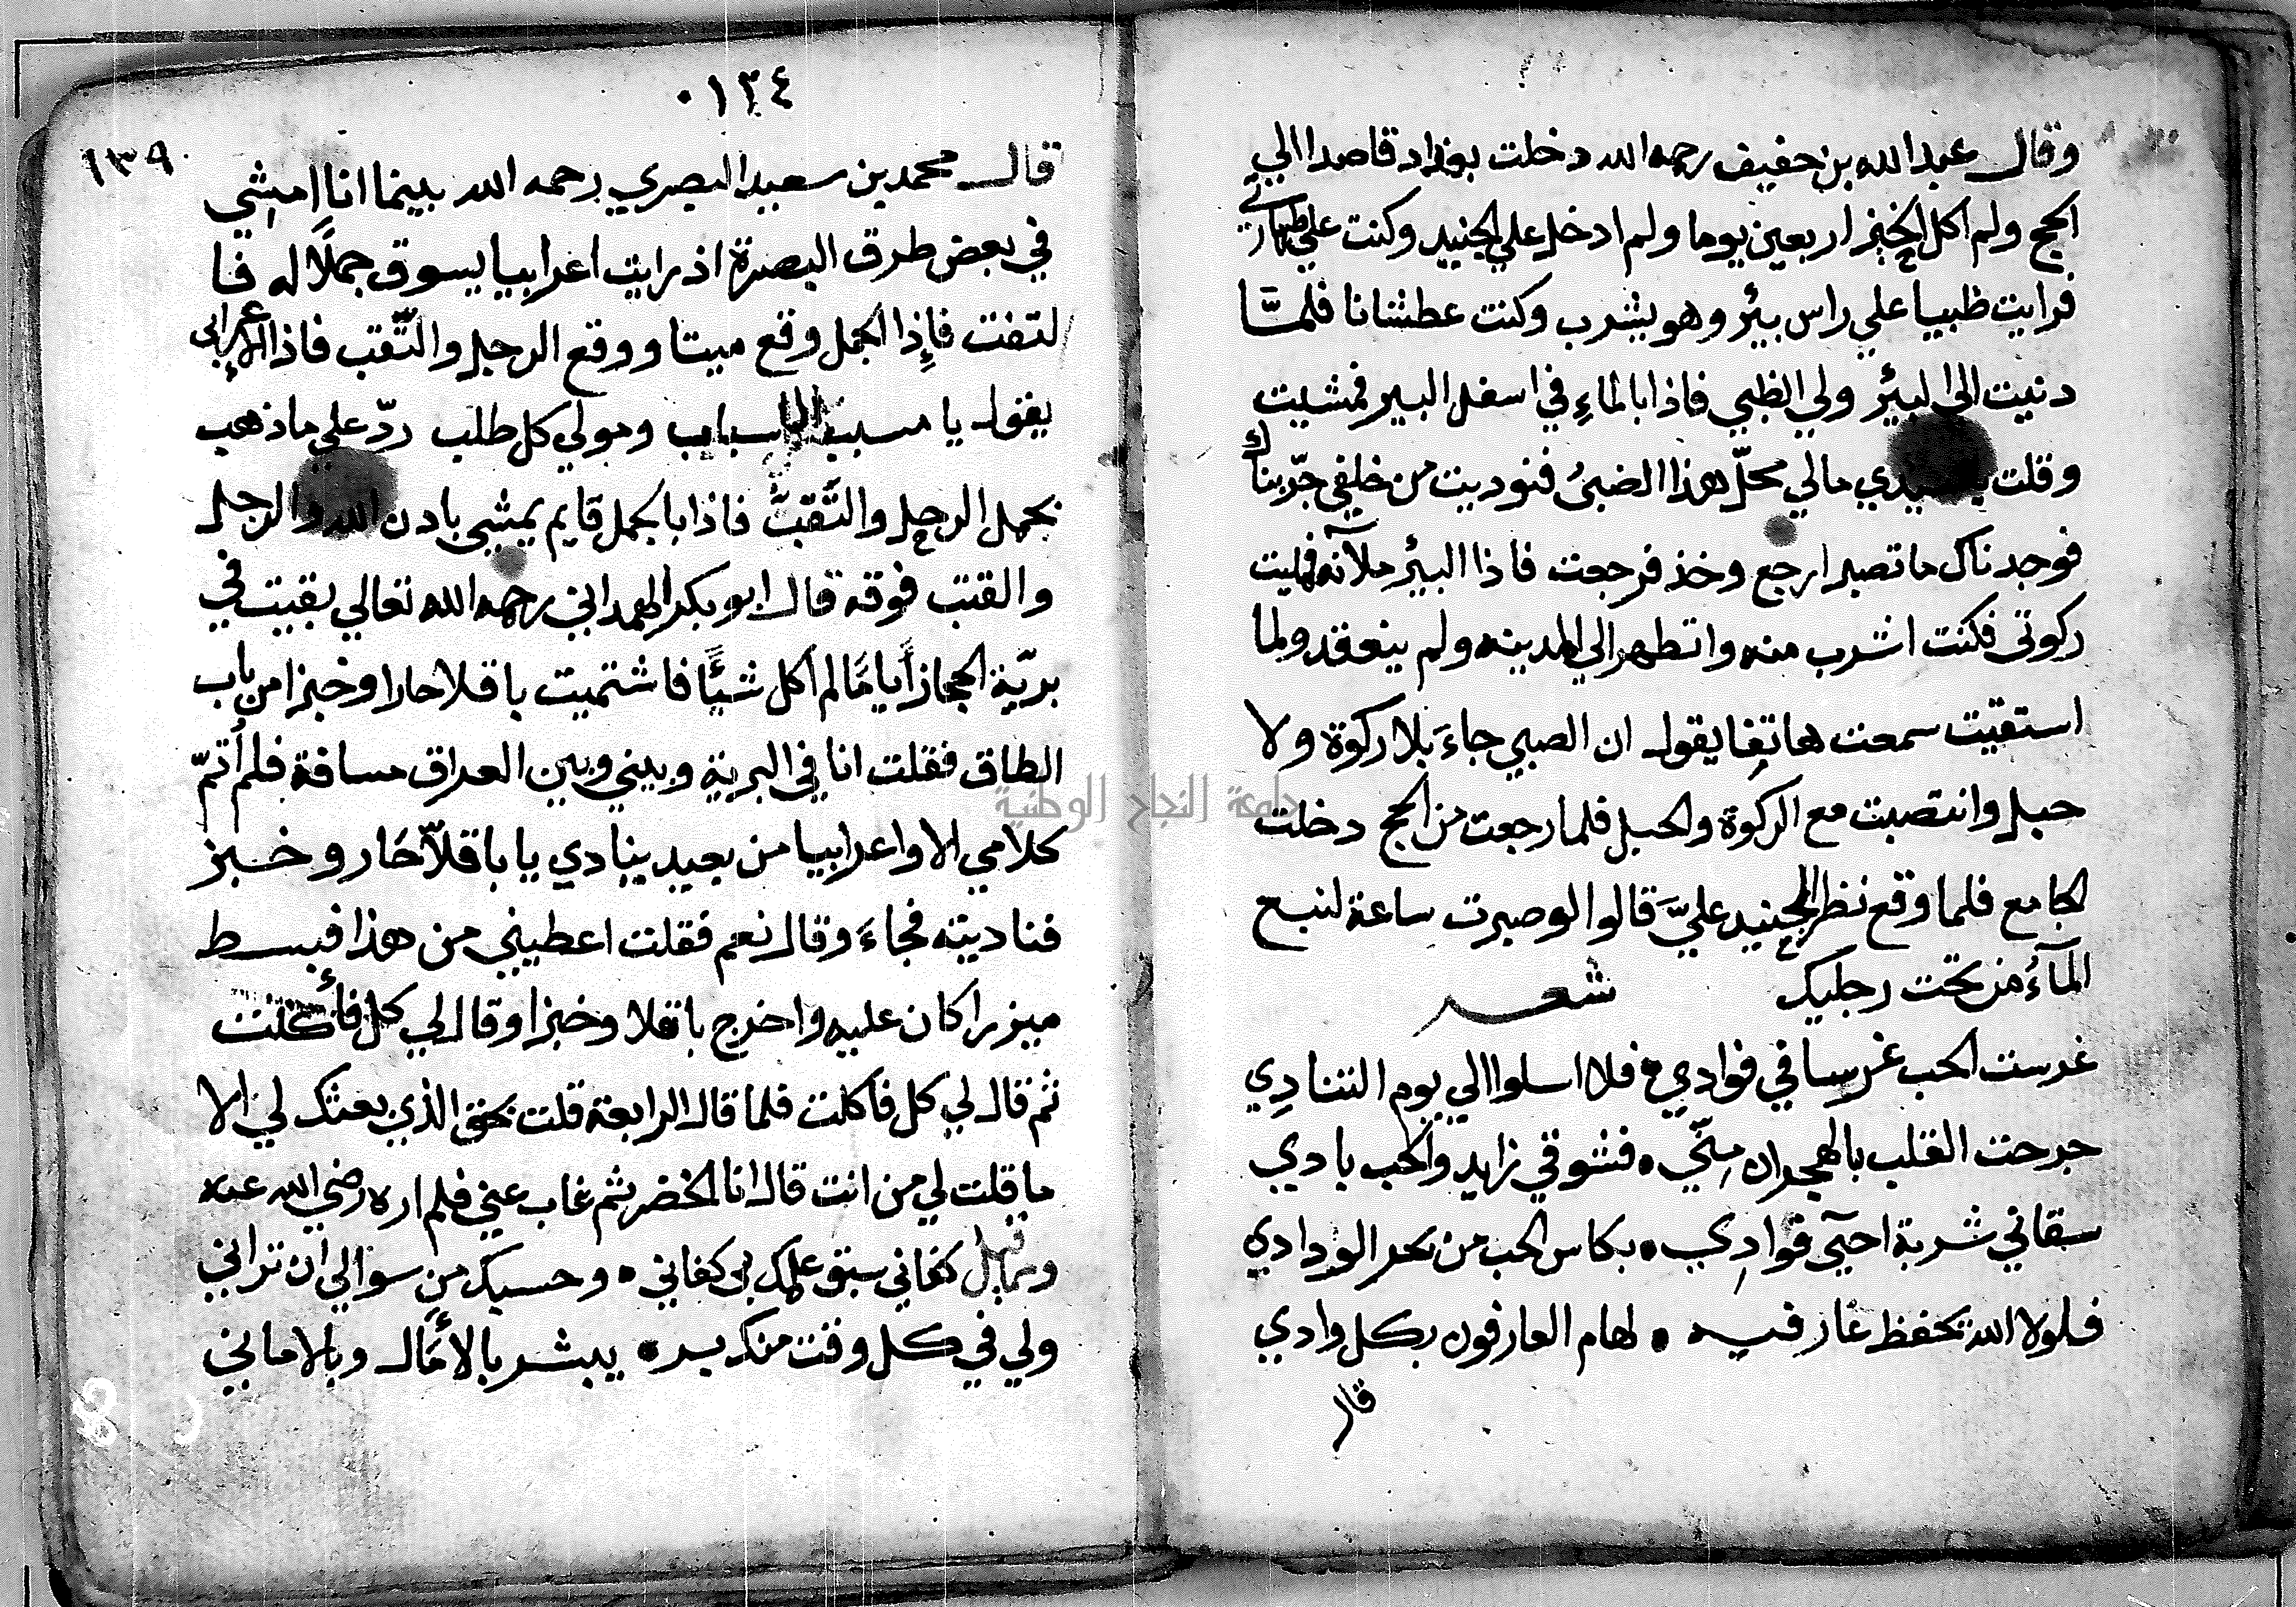 وقال عبد الله بن حفيف رحمه الله دخلت بغداد قاصدا الي
الحج ولم اكل الخبز اربعين يوما ولم ادخل علي الجنيد وكنت علي طهارتي
فرايت ظبيا علي راس بئر وهو يشرب وكنت عطشانا فلمَّا
دنيت الى البئر ولي الظبي فاذا بالماءِ في اسفل البير فمشيت
وقلت يا سيدي مالي محلّ هذا الضبيُ فنوديت من خلفي جرّبناك
فوجدناك ما تصبر ارجع وخذ فرجعت فاذا البئر ملآنه فمليت
ركوتي فكنت اشرب منه واتطهر الي المدينه ولم ينعقد ولما
استقيت سمعت هاتفا يقول ان الصبي جاءَ بلا ركوة ولا
حبل وانتصبت مع الركوة والحبل فلما رجعت من الحج دخلت
الجامع فلما وقع نظر الجنيد عليَّ قالوا لو صبرت ساعة لنبع
المآءُ من تحت رجليك شعر
غرست الحب غرسا في فوادي فلا اسلوا الي يوم التنادِي
جرحت القلب بالهجران مِنّي فشوقي زايد والحب بادي
سقاني شربة احيَى فوادِي بكاس الحب من بحر الودادي
فلولا الله تحفظ عارفيه لهام العارفون بكل وادي
قال
٠١٣٤
١٣٩
قال محمد بن سعيد البصري رحمه الله بينما انا امشي
في بعض طرق البصرة اذ رايت اعرابيا يسوق جملًا له فا
لتفت فاِذا الجمل وقع ميتا ووقع الرجل والتّقب فاذا الاعرابي
يقول يا مسبب الاسباب ومولي كل طلب ردّ علي ما ذهب
بجمل الرحل والتَّقبُ فاذا بالجمل قايم يمشي بادن الله والرجل
والقتب فوقه قال ابو بكر الهمداني رحمه الله تعالي بقيت في
بريّة الحجاز أيامًا لم اكل شيئًا فاشتميت باقلا حارا وخبزا من باب
الطاق فقلت انا في البرية وبيني وبين العراق مسافة فلم أُتمّ
كلامي الا واعرابيا من بعيد ينادي يا باقلاّ حَار وخبز
فناديته فجاءَ وقال نعم فقلت اعطيني من هذا فبسط
ميزرا كان عليه واخرج باقلا وخبزا وقال لي كل فأكلت
ثم قال لي كل فاكلت فلما قال الرابعة قلت بحق الذي بعثك لي الا
ما قلت لي من انت قال انا الخضر ثم غاب عني فلم اره رضي الله عنه
قيل كفاني سبق علمك بي كفاني وحسبك من سوالي ان تراني
ولي في كل وقت منك بسر يبشر بالأمَال وبالاماني
جامعة النجاح الوطنية